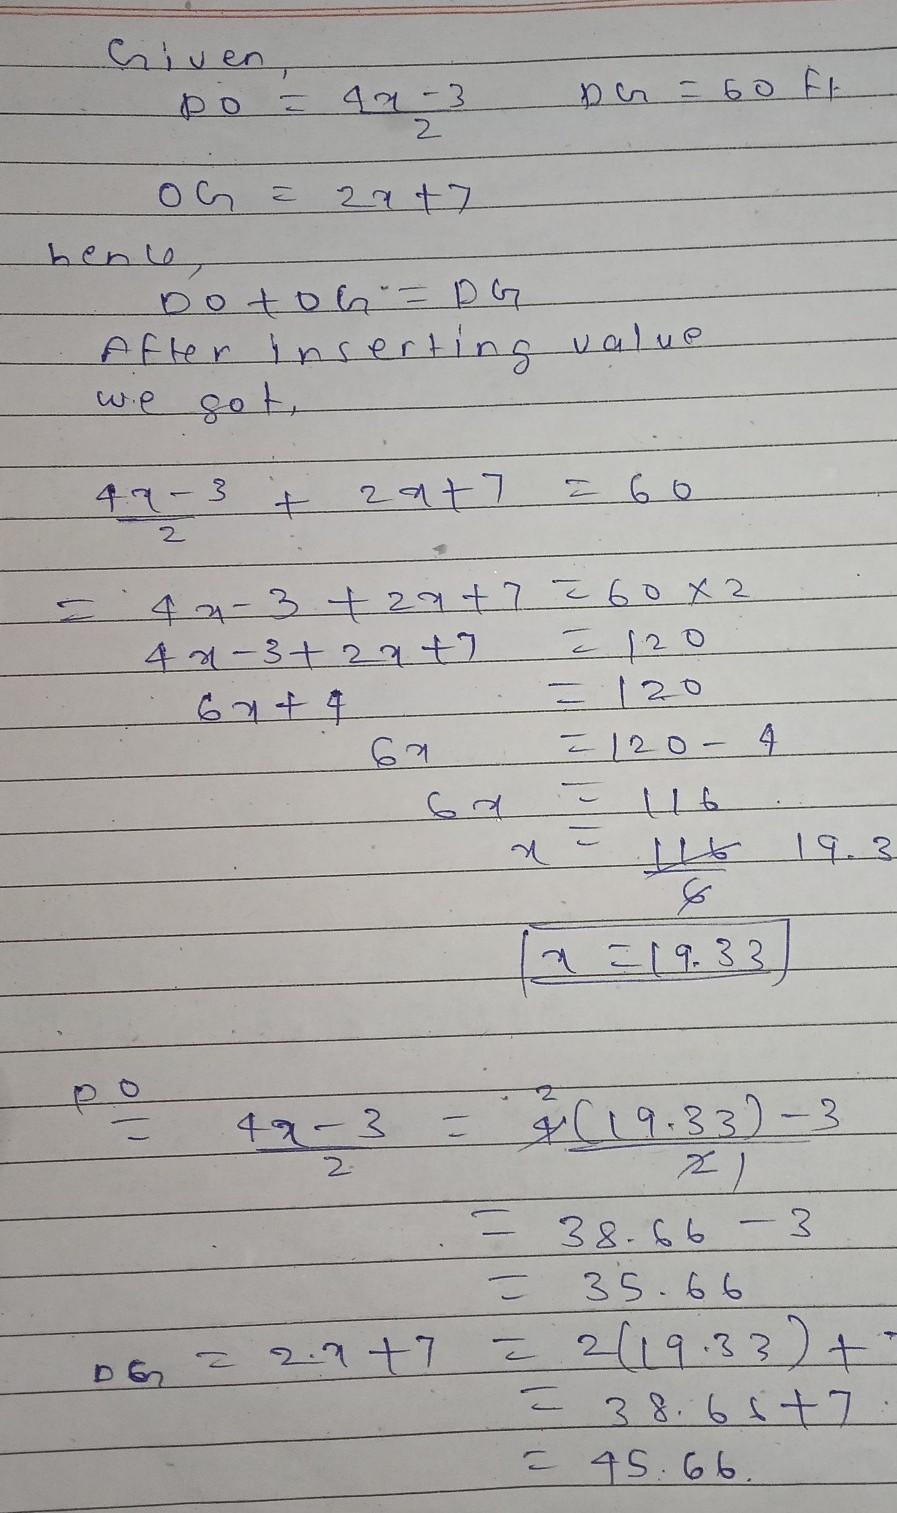 Given,
DO = 4x-3/2 DG = 60 ft
OG = 2x+7
hence,
DO + OG = DG
After inserting value
we got,
4x-3/2 + 2x+7 = 60
= 4x-3+2x+7 = 60×2
4x-3+2x+7 = 120
6x+4 = 120
6x = 120-4
6x = 116
x = 116/6 19.3
x = 19.33
DO
= 4x-3/2 = 4 2(19.33)-3/2 1
= 38.66-3
= 35.66
DG = 2.x+7 = 2(19.33)+
= 38.66+7
= 45.66.